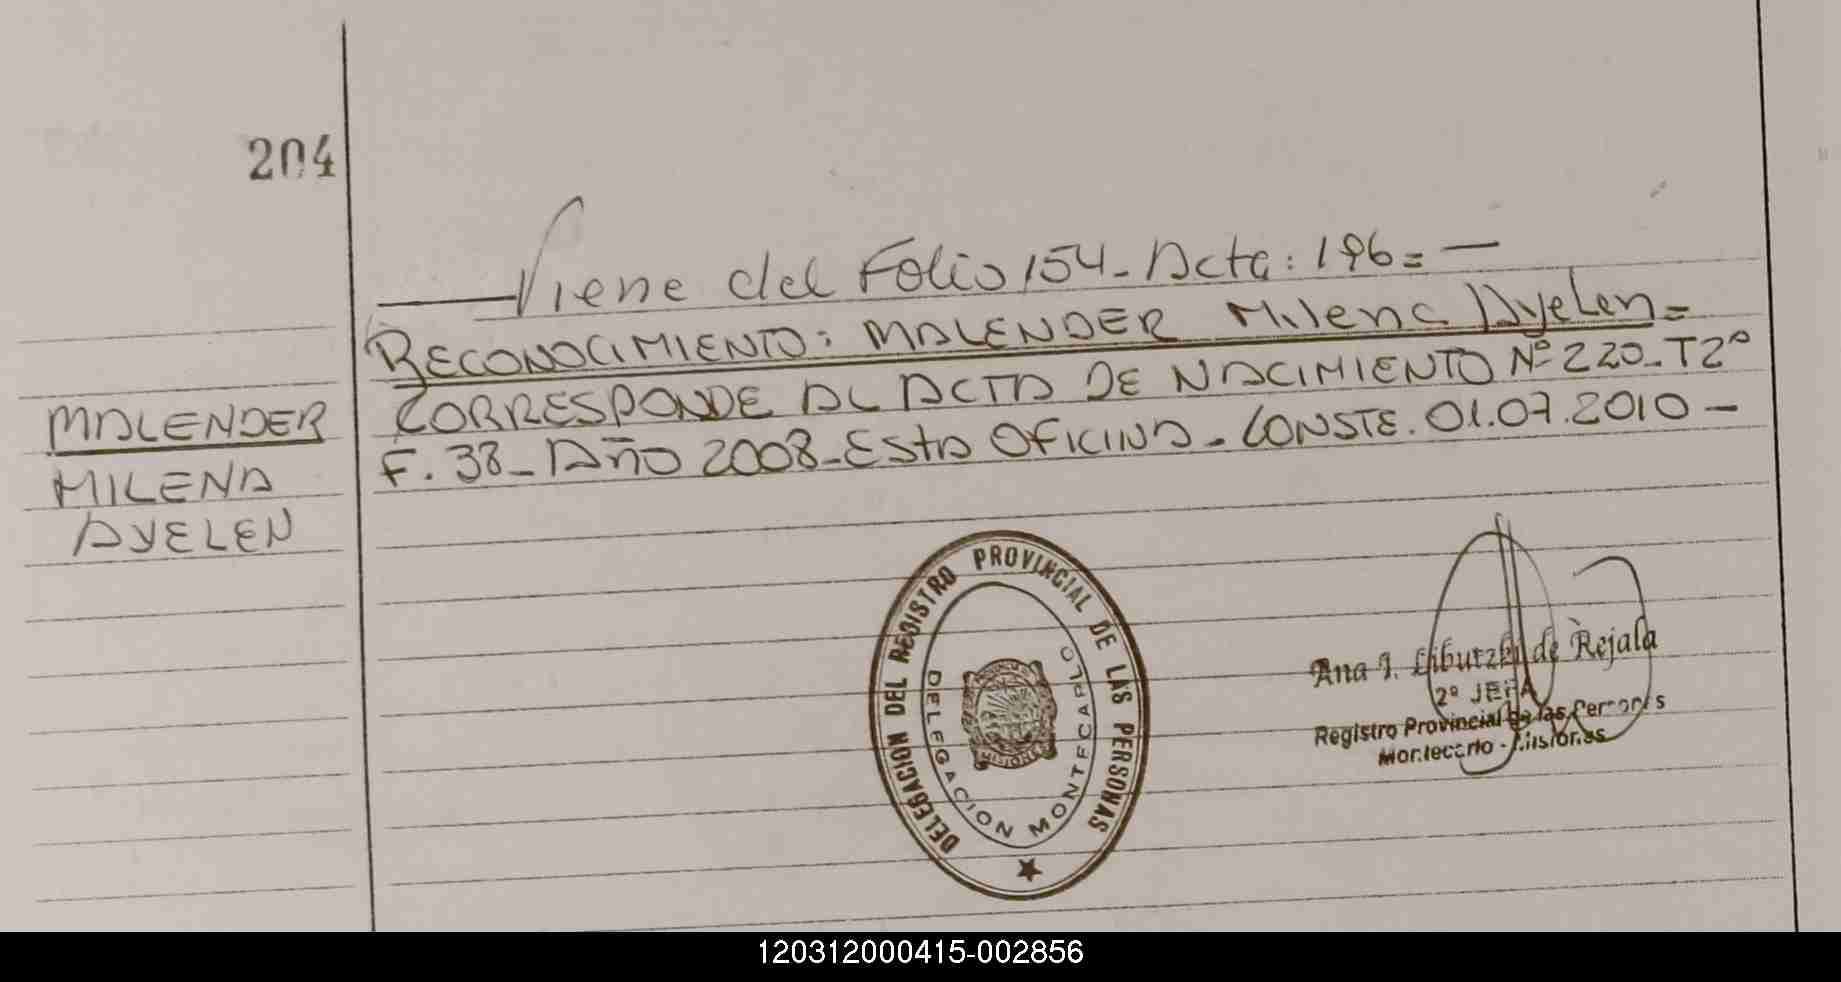 204
Viene del Folio 154_ Acta: 196=
RECONOCIMIENTO: MALENDER Milena Ayelen=
CORRESPONDE AL ACTA DE NACIMIENTO Nº 220_T2º
F. 38_ Año 2008_ Esta OFICINA_ CONSTE. 01.07.2010 -
MALENDER
MILENA
AYELEN
DELEGACION DEL REGISTRO PROVINCIAL DE LAS PERSONAS
DELEGACION MONTECARLO
MISIONES
Ana I. de Rejala
2º JEFA
Registro Provincial de las Personas
Montecarlo - Misiones
120312000415-002856